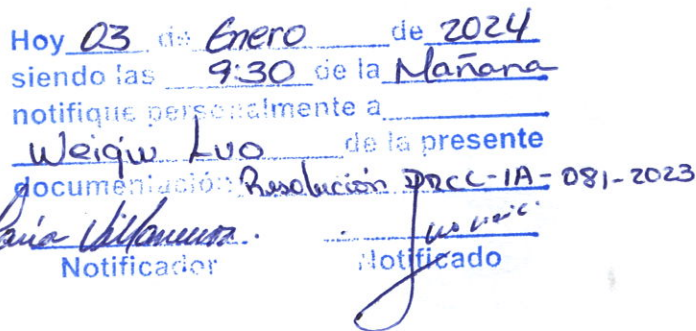 Hoy 03 de Enero de 2024
siendo las 9:30 de la Mañana
notifique personalmente a
Weiqiu Luo de la presente
documentación: Resolución DRCC-IA-081-2023
María Villanueva.
Notificador Notificado